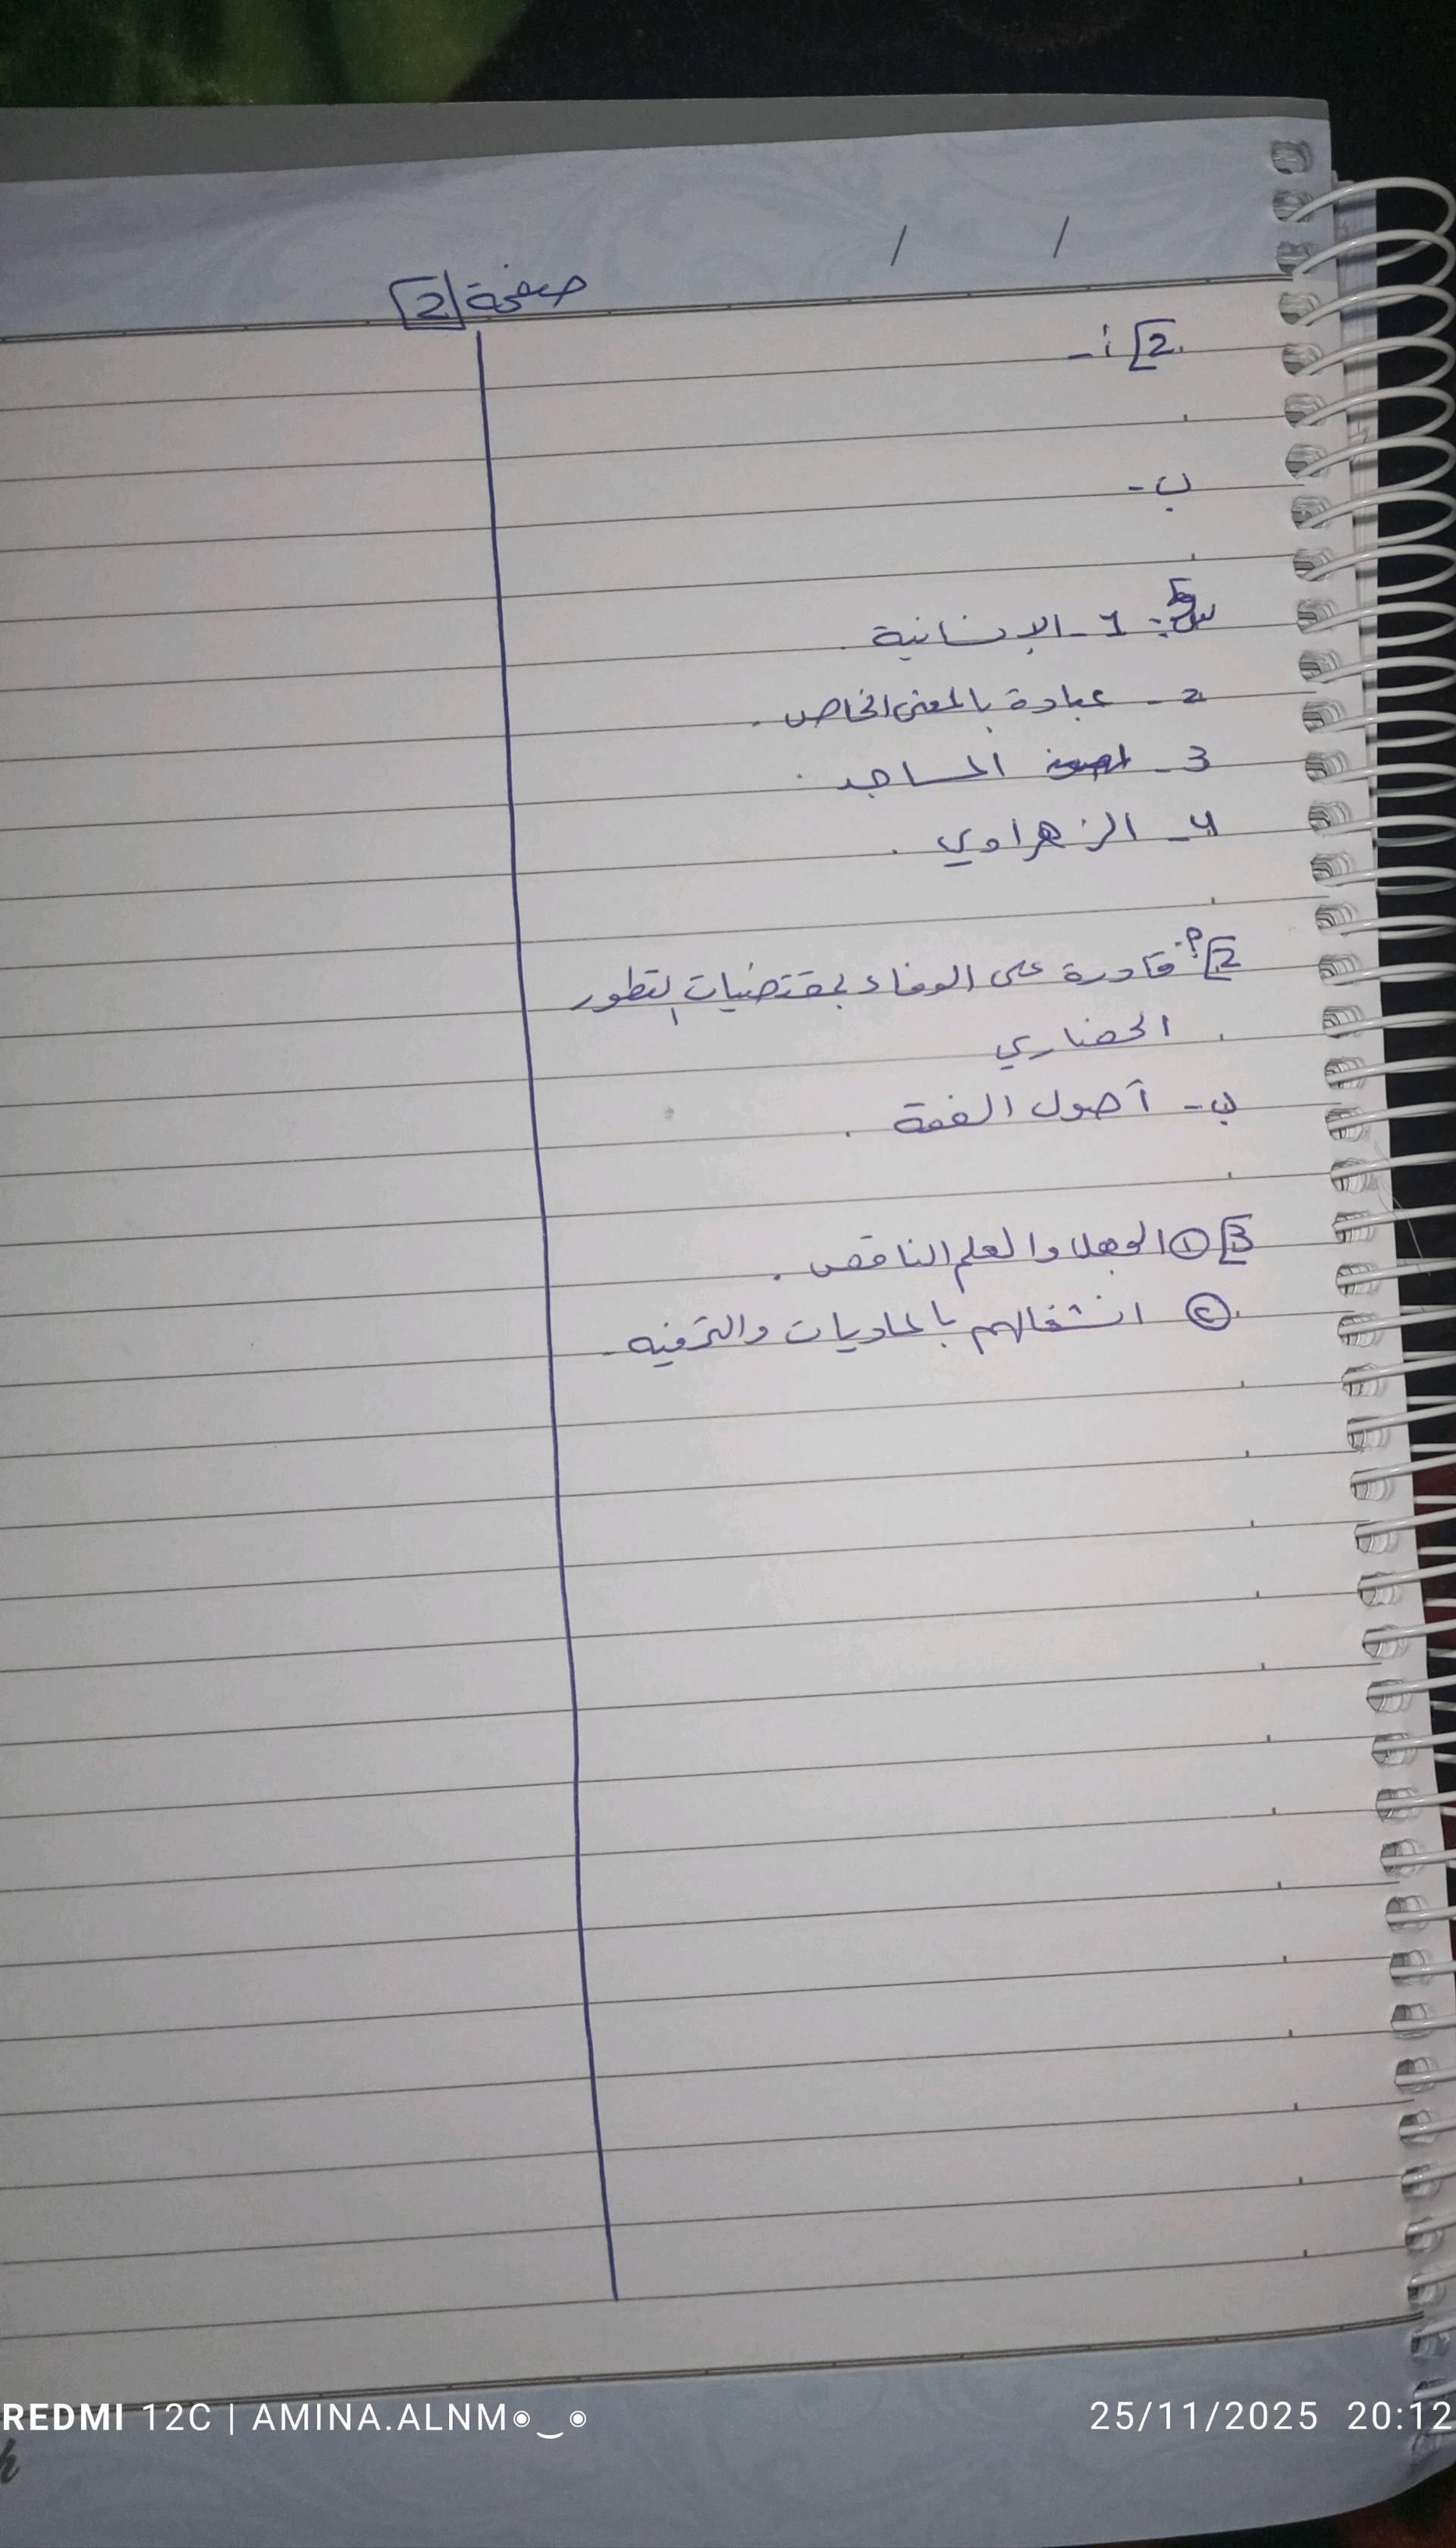 صفحة 2
/ /
2 أ -
ب -
س5: 1 - الإنسانية .
2 - عبادة بالمعنى الخاص .
3 - المساجد .
4 - الزهراوي .
2 أ- قادرة على الوفاء بمقتضيات التطور
الحضاري .
ب - أصول الفقة .
3 ① الجهل والعلم الناقص .
② انشغالهم بالماديات والترفيه .
REDMI 12C | AMINA.ALNM◉‿◉
25/11/2025 20:12